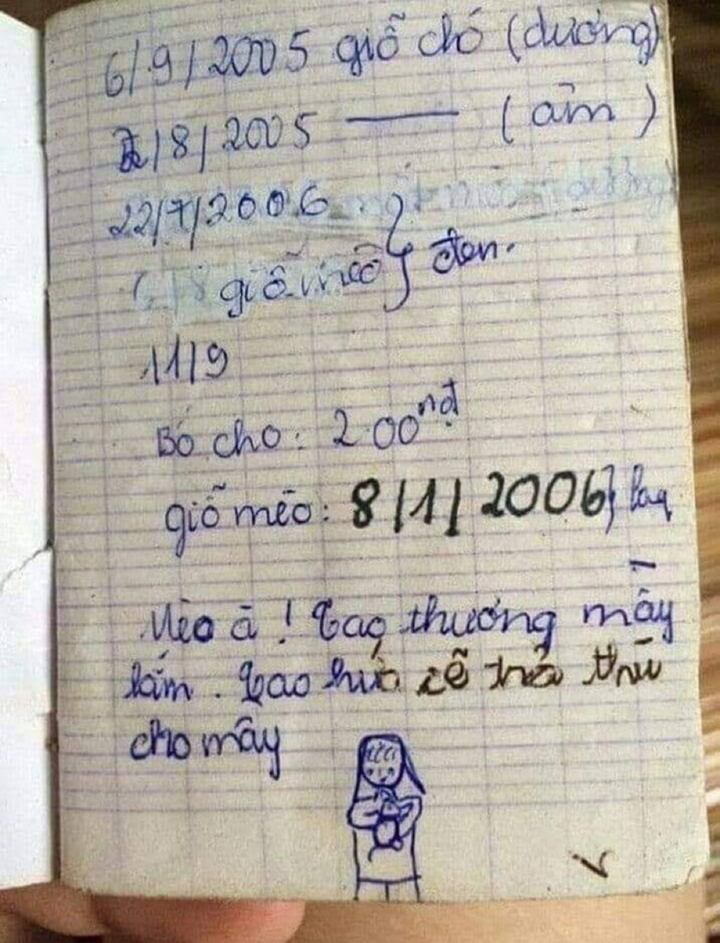 6/9/2005 giỗ chó (dương)
/8/2005 —— (âm)
22/7/2006
giỗ mèo } đen.
11/9
Bó cho: 200 nđ
giỗ mèo: 8/1/2006}
Mèo à! Tao thương mầy
lắm. Tao hứa sẽ trả thù
cho mầy